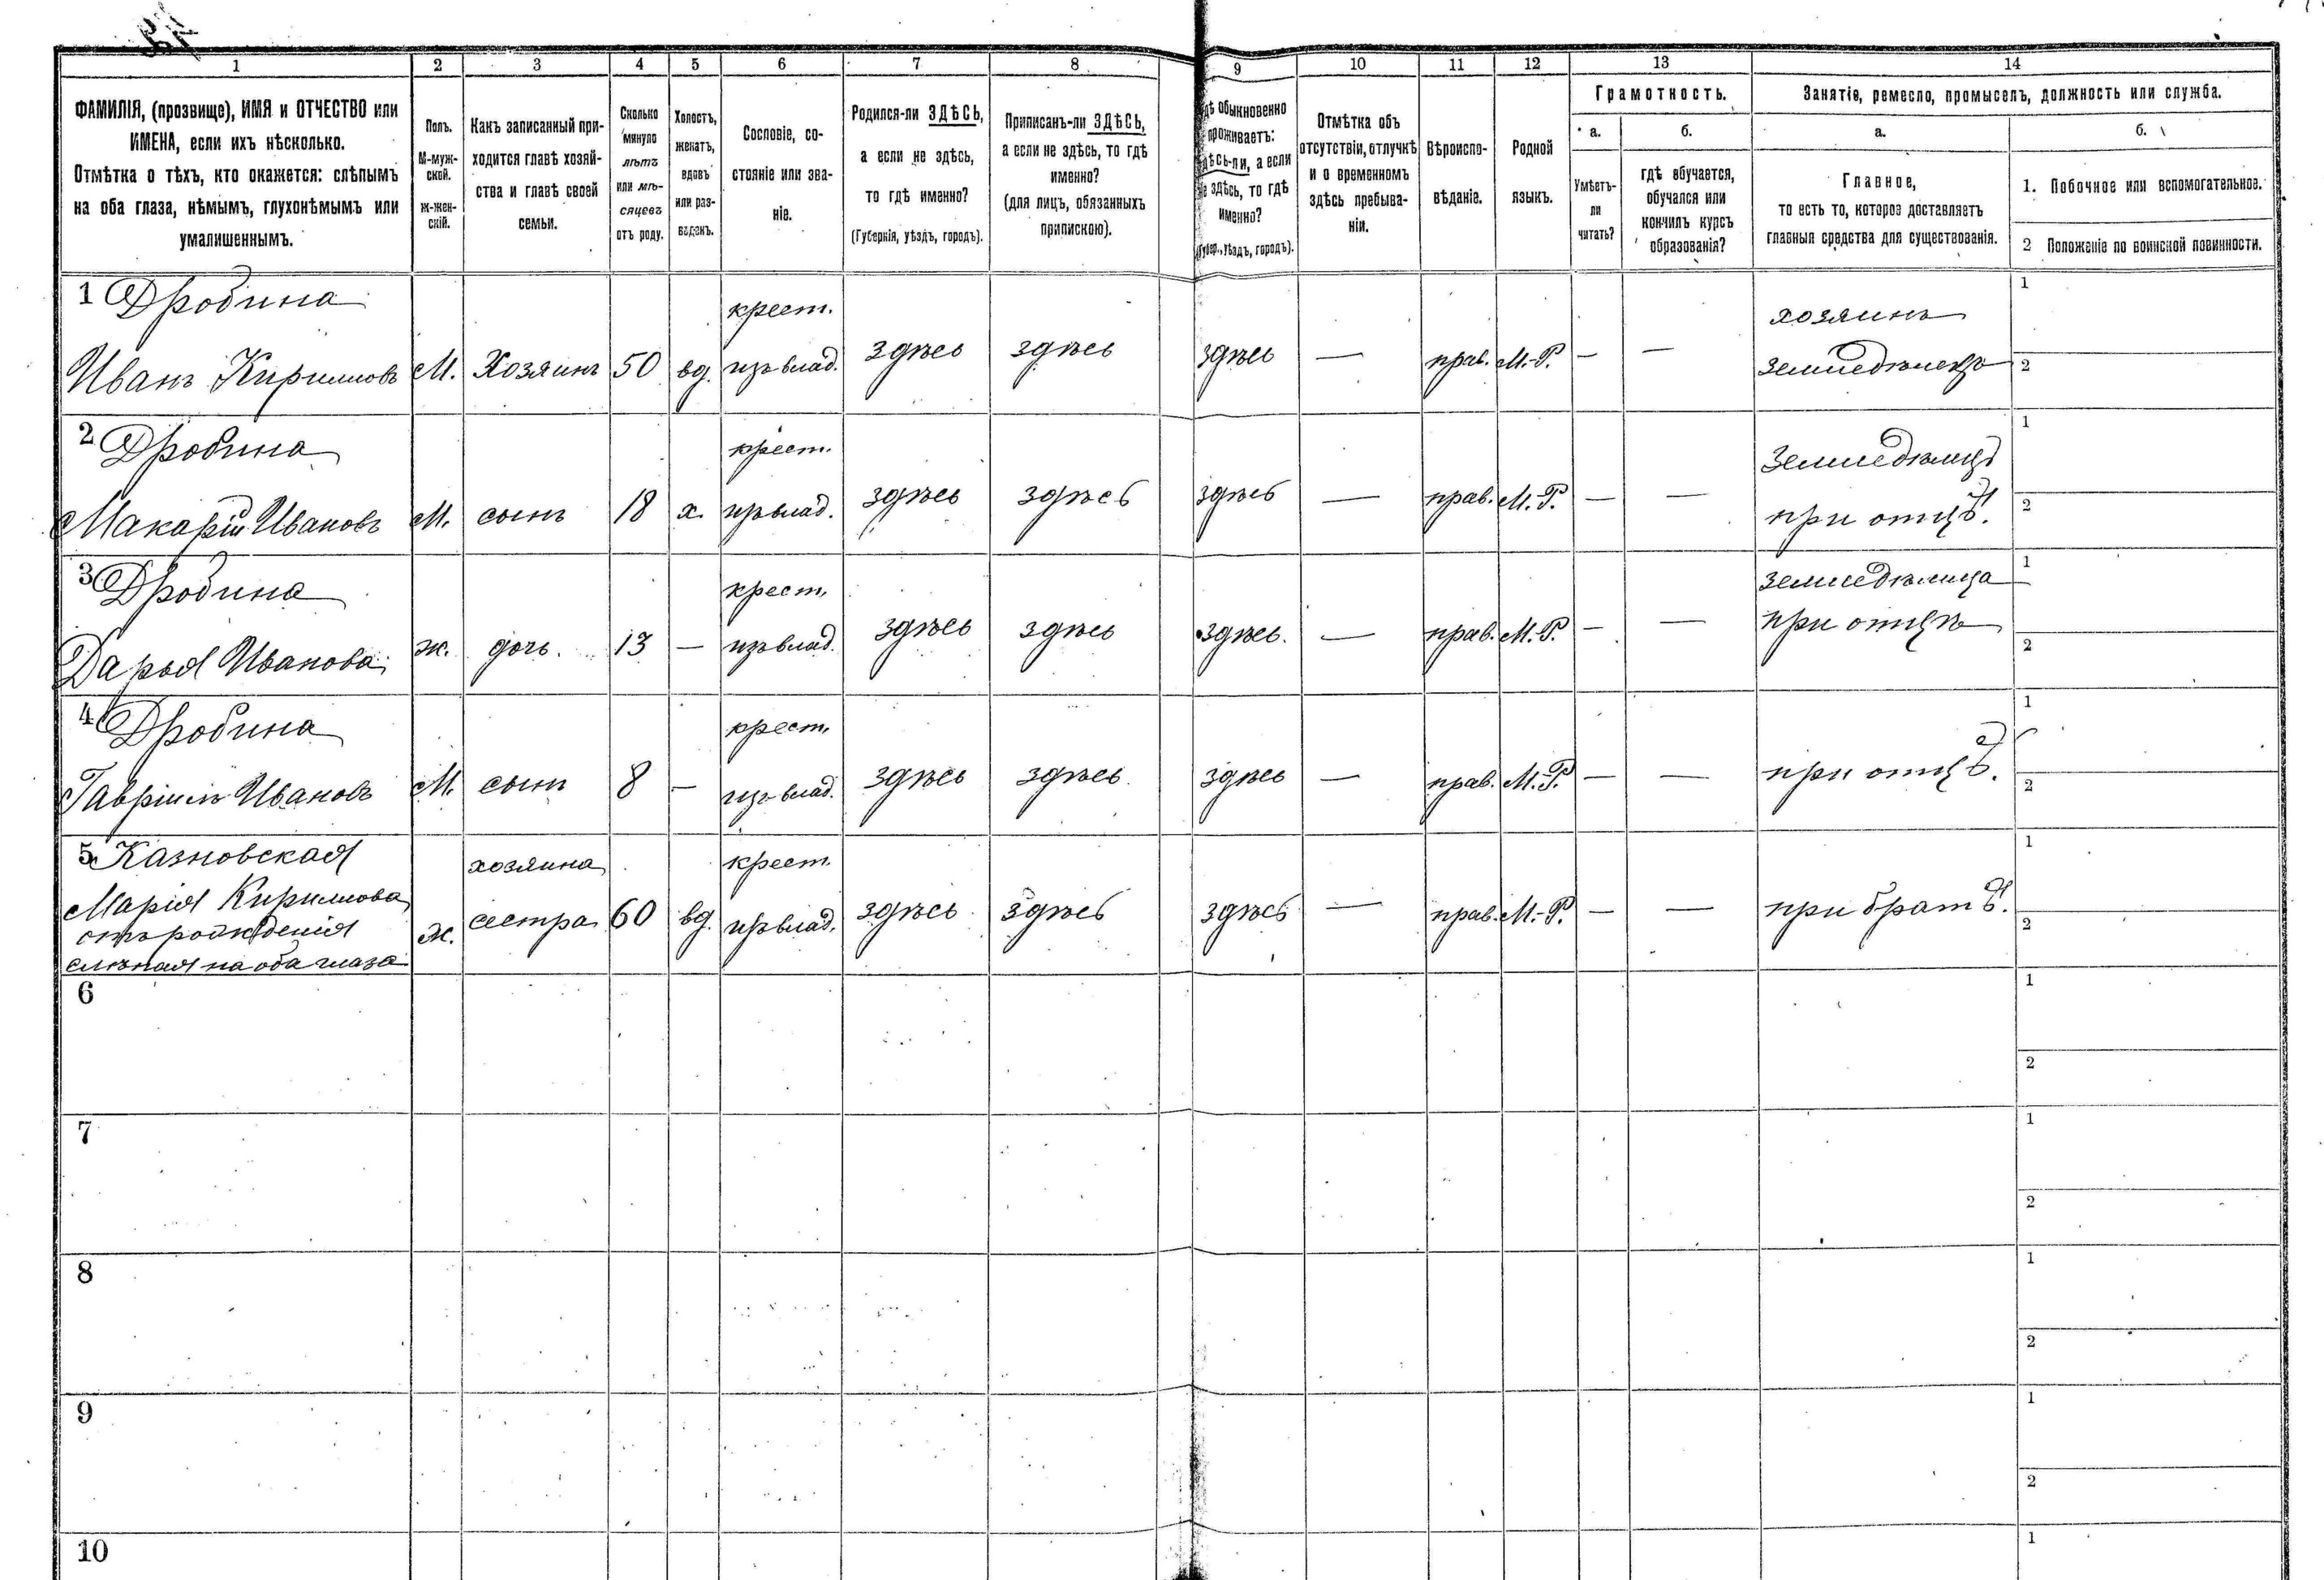 1 2 3 4 5 6 7 8 9 10 11 12 13 14
ФАМИЛІЯ, (прозвище), ИМЯ и ОТЧЕСТВО или
ИМЕНА, если ихъ нѣсколько.
Отмѣтка о тѣхъ, кто окажется: слѣпымъ
на оба глаза, нѣмымъ, глухонѣмымъ или
умалишеннымъ.
Полъ.
М-муж-
ской.
ж-жен-
скій.
Какъ записанный при-
ходится главѣ хозяй-
ства и главѣ своей
семьи.
Сколько
минуло
лѣтъ
или мѣ-
сяцевъ
отъ роду.
Холостъ,
женатъ,
вдовъ
или раз-
веденъ.
Сословіе, со-
стояніе или зва-
ніе.
Родился-ли ЗДѢСЬ,
а если не здѣсь,
то гдѣ именно?
(Губернія, уѣздъ, городъ).
Приписанъ-ли ЗДѢСЬ,
а если не здѣсь, то гдѣ
именно?
(для лицъ, обязанныхъ
припискою).
гдѣ обыкновенно
проживаетъ:
здѣсь-ли, а если
не здѣсь, то гдѣ
именно?
(Губер., уѣздъ, городъ).
Отмѣтка объ
отсутствіи, отлучкѣ
и о временномъ
здѣсь пребыва-
ніи.
Вѣроиспо-
вѣданіе.
Родной
языкъ.
Грамотность.
а.
Умѣетъ-
ли
читать?
б.
гдѣ обучается,
обучался или
кончилъ курсъ
образованія?
Занятіе, ремесло, промыселъ, должность или служба.
а.
Главное,
то есть то, которое доставляетъ
главныя средства для существованія.
б.
1. Побочное или вспомогательное.
2 Положеніе по воинской повинности.
1 Дробина крест. хозяинъ 1
Иванъ Кирилловъ М. Хозяинъ 50 вд. изъ влад. здѣсь здѣсь здѣсь — прав. М.-Р. — — земледѣлецъ 2
2 Дробина крест. земледѣлецъ 1
Макарій Ивановъ М. сынъ 18 х. изъ влад. здѣсь здѣсь здѣсь — прав. М.-Р. — — при отцѣ. 2
3 Дробина крест. земледѣлица 1
Дарья Иванова ж. дочь. 13 — изъ влад. здѣсь здѣсь здѣсь. — прав. М.-Р. — — при отцѣ 2
4 Дробина крест. 1
Гавріилъ Ивановъ М. сынъ 8 — изъ влад. здѣсь здѣсь здѣсь — прав. М.-Р. — — при отцѣ. 2
5 Казновская хозяина крест. 1
Марія Кириллова сестра 60 вд. изъ влад. здѣсь здѣсь здѣсь — прав. М.-Р. — — при братѣ. 2
отъ рожденія ж.
слѣпая на оба глаза
6 1
2
7 1
2
8 1
2
9 1
2
10 1